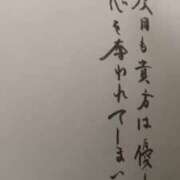 次目も貴方は優し
心を奪われてしまい